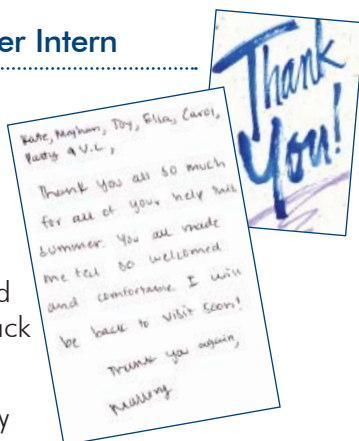 er Intern
Thank
You!
Kate, Meghan, Joy, Ella, Carol,
Patty & V.L.,
Thank you all so much
for all of your help this
summer. You all made
me feel so welcomed
and comfortable I will
be back to visit soon!
Thank you again,
Mallory
d
ack
y